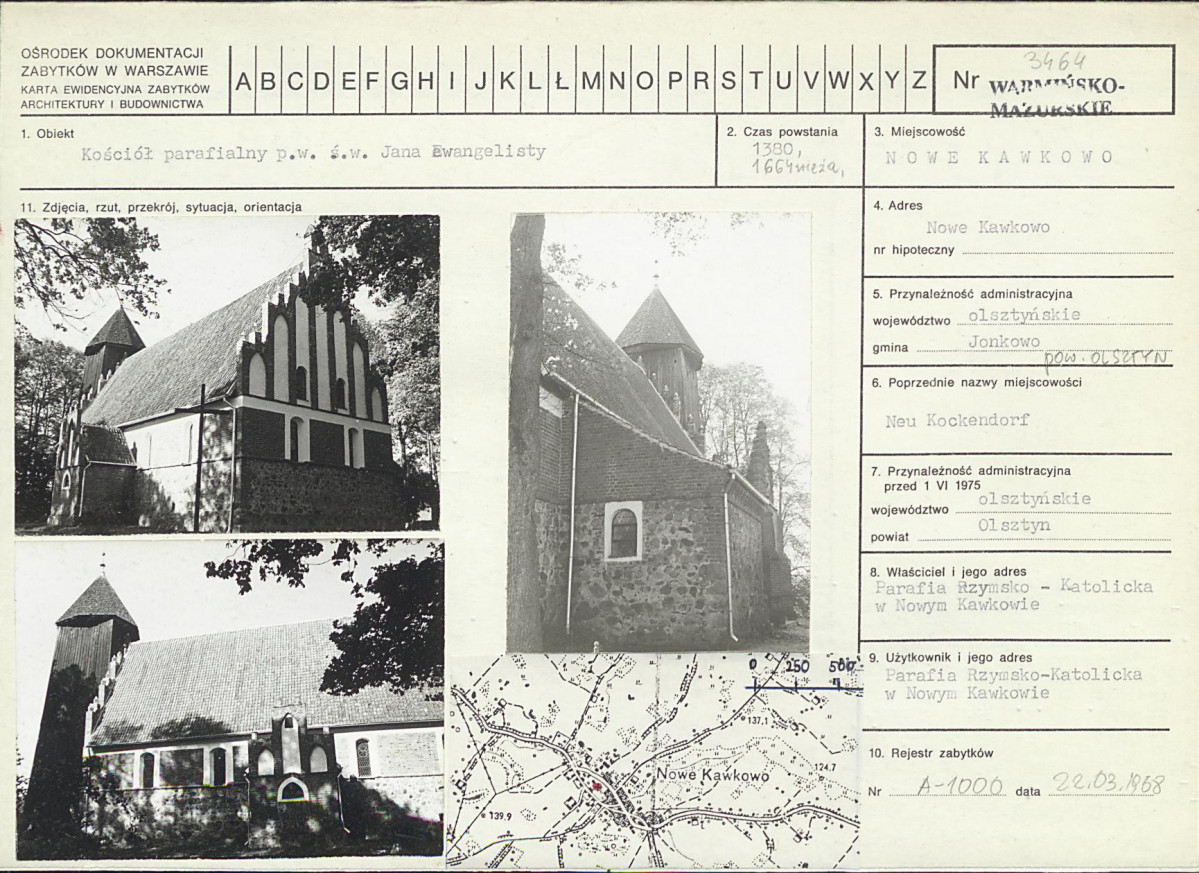 OŚRODEK DOKUMENTACJI
ZABYTKÓW W WARSZAWIE
KARTA EWIDENCYJNA ZABYTKÓW
ARCHITEKTURY I BUDOWNICTWA
A B C D E F G H I J K L Ł M N O P R S T U V W X Y Z
Nr 3464
WARMIŃSKO-
MAZURSKIE
1. Obiekt
Kościół parafialny p.w. ś.w. Jana Ewangelisty
2. Czas powstania
1380,
1664 wieża,
3. Miejscowość
NOWE KAWKOWO
11. Zdjęcia, rzut, przekrój, sytuacja, orientacja
4. Adres
Nowe Kawkowo
nr hipoteczny
5. Przynależność administracyjna
województwo olsztyńskie
gmina Jonkowo
pow. OLSZTYN
6. Poprzednie nazwy miejscowości
Neu Kockendorf
7. Przynależność administracyjna
przed 1 VI 1975
województwo olsztyńskie
powiat Olsztyn
8. Właściciel i jego adres
Parafia Rzymsko - Katolicka
w Nowym Kawkowie
9. Użytkownik i jego adres
Parafia Rzymsko-Katolicka
w Nowym Kawkowie
10. Rejestr zabytków
Nr A-1000 data 22.03.1968
0 250 500
137,1
Nowe Kawkowo
124.7
139.9